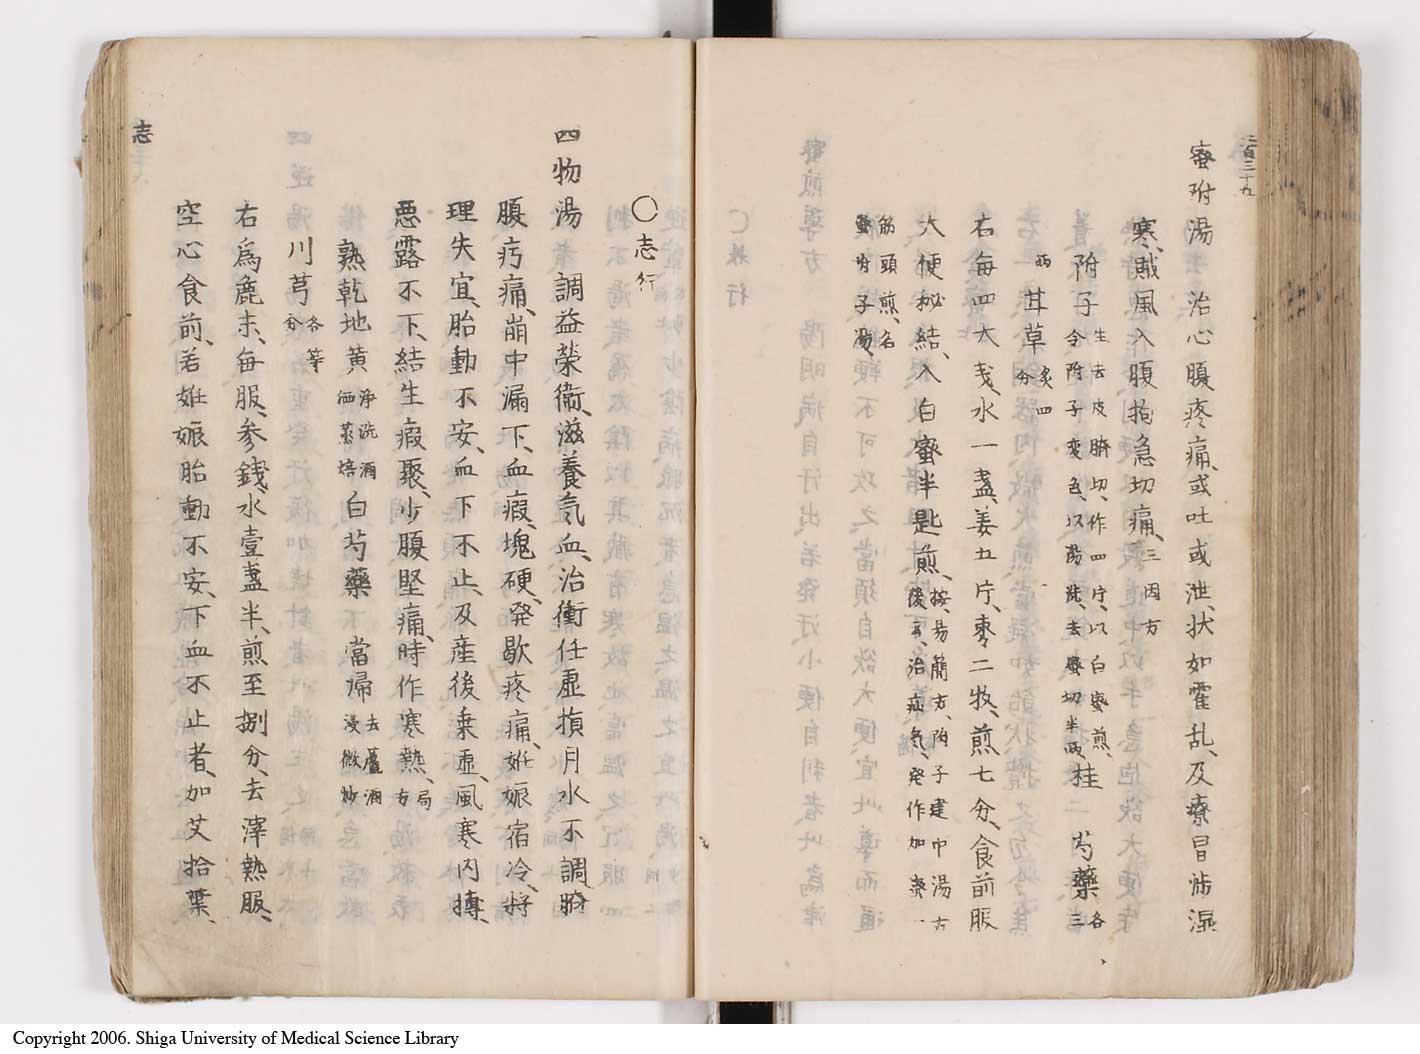 三百三十九
蜜附湯 治心腹疼痛、或吐或泄、状如霍乱、及療冒渉湿
寒、賊風入腹拘急切痛、三因方
附子 生去皮臍切、作四片、以白蜜煎、
令附子変色、以湯洗、去蜜切半両、 桂 芍薬 各三
両 甘草 炙四分
右毎四大戔、水一盞、姜五片、棗二牧、煎七分、食前服
大便秘結、入白蜜半匙煎、 按、易簡方、附子建中湯方
後云、治疝気、発作加蜜一
筋頭煎、名
蜜附子湯、
〇志行
四物湯 調益榮衞、滋養氣血、治衝任虚損月水不調臍
腹疞痛、崩中漏下、血瘕、塊硬、発歇疼痛、姙娠宿冷、将
理失宜、胎動不安、血下不止、及産後乗虚、風寒内搏、
悪露不下、結生瘕聚、少腹堅痛、時作寒熱、局方
熟乾地黄 浄洗酒
洒蒸焙 白芍藥 當帰 去蘆酒
浸微炒
川芎 各等
分
右為麁末、毎服、参錢、水壹盞半、煎至捌分、去滓熱服、
空心食前、若姙娠胎動不安、下血不止者、加艾拾葉、
志